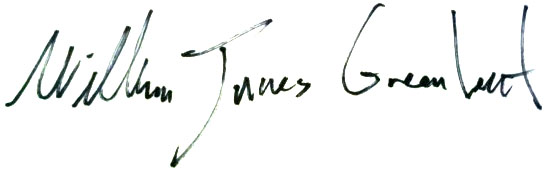 William James Greenleaf